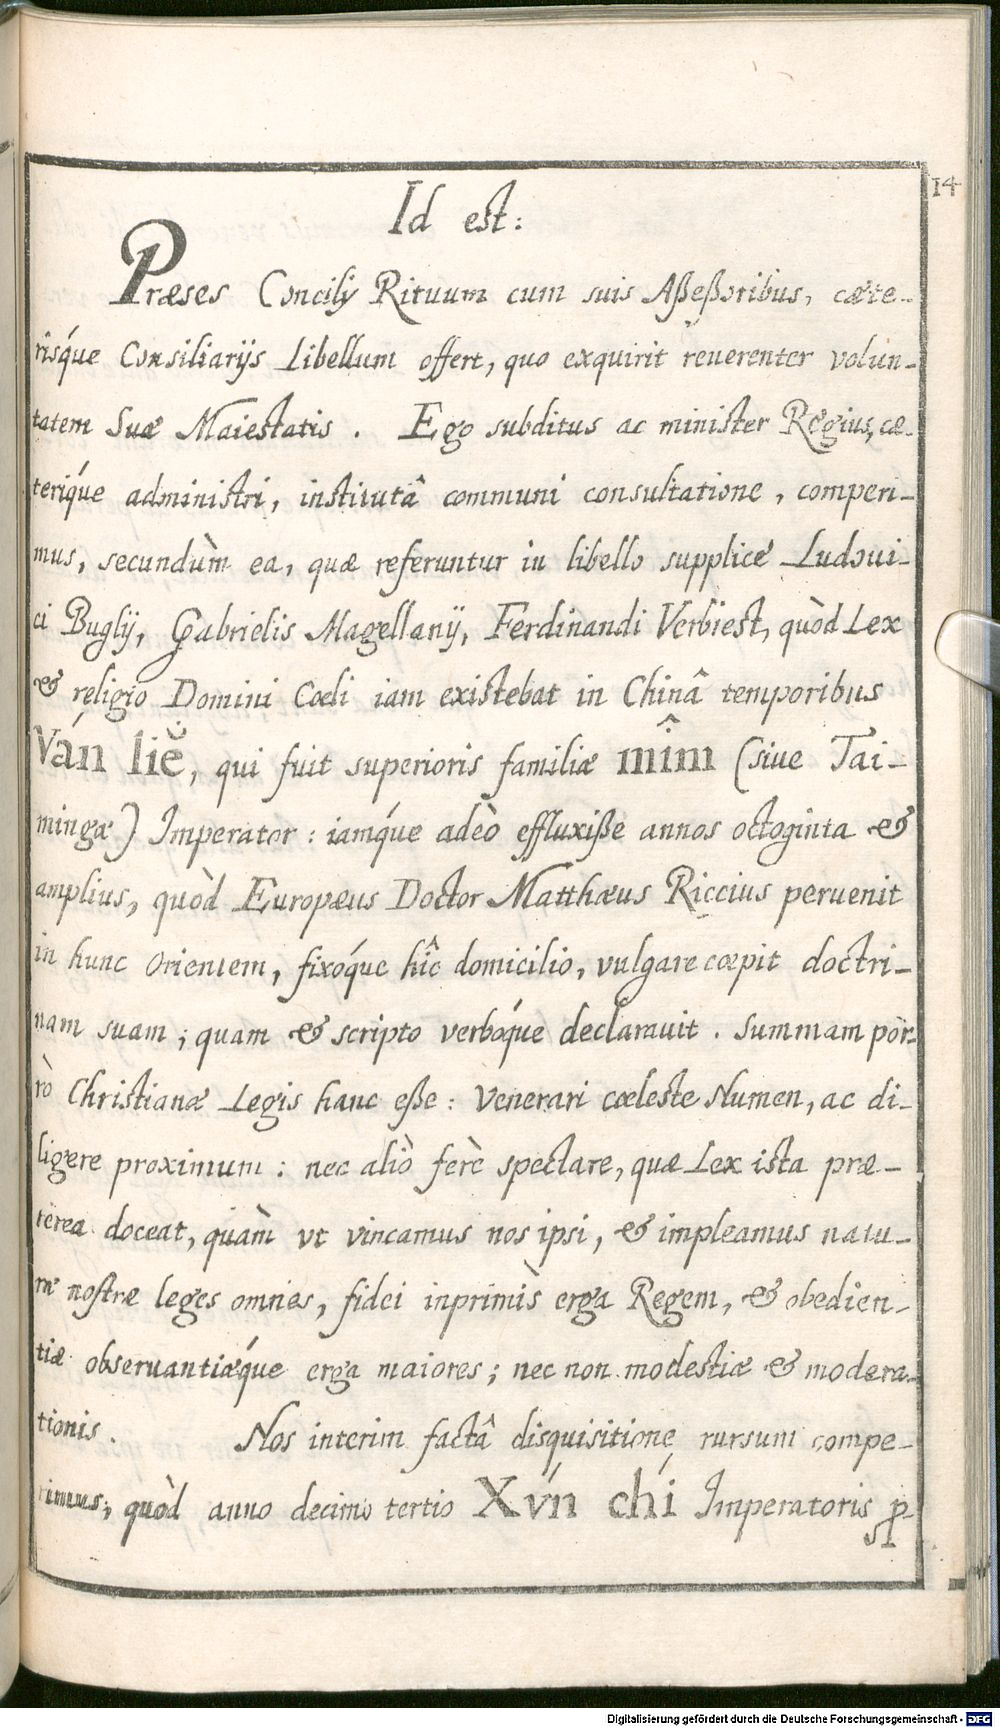 14
Id est:
Præses Concilij Rituum cum suis Aßeßoribus, cæte-
risq́ue Consiliarijs Libellum offert, quo exquirit reuerenter volun-
tatem Suæ Maiestatis. Ego subditus ac minister Regius, cæ-
teriq́ue administri, institutâ communi consultatione, comperi-
mus, secundùm ea, quæ referuntur in libello supplice Ludoui-
ci Buglij, Gabrielis Magellanij, Ferdinandi Verbiest, quòd Lex
& religio Domini Cœli iam existebat in Chinâ temporibus
Ván liĕ, qui fuit superioris familiæ mîm (siue Tai-
mingæ) Imperator: iamq́ue adeò effluxiße annos octoginta &
amplius, quòd Europæus Doctor Matthæus Riccius peruenit
in hunc Orientem, fixoq́ue hîc domicilio, vulgare cœpit doctri-
nam suam; quam & scripto verboq́ue declarauit. Summam por-
rò Christianæ Legis hanc eße: Venerari cœleste Numen, ac di-
ligere proximum: nec aliò ferè spectare, quæ Lex ista præ-
terea doceat, quàm vt vincamus nos ipsi, & impleamus natu-
ræ nostræ leges omnes, fidei inprimis erga Regem, & obedien-
tiæ obseruantiæq́ue erga maiores; nec non modestiæ & modera-
tionis. Nos interim factâ disquisitione rursum compe-
rimus, quòd anno decimo tertio Xv́n chí Imperatoris p-
sl
Digitalisierung gefördert durch die Deutsche Forschungsgemeinschaft - DFG